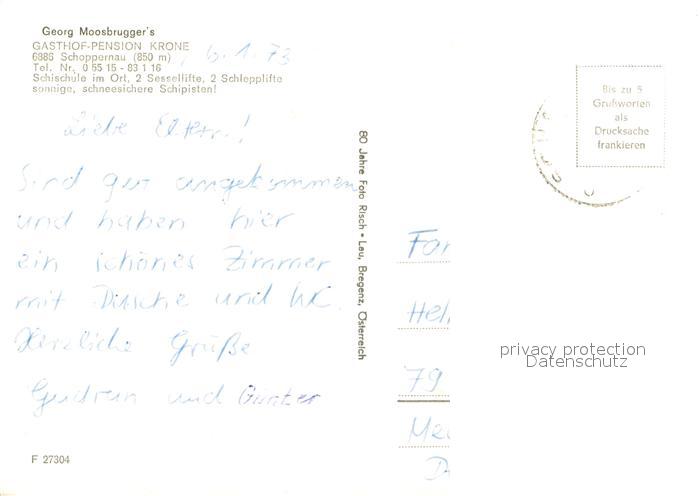 Georg Moosbrugger's
GASTHOF-PENSION KRONE
6886 Schoppernau (850 m)
Tel. Nr. 0 55 15 - 83 1 16
Schischule im Ort, 2 Sessellifte, 2 Schlepplifte
sonnige, schneesichere Schipisten!
, 6.1.73
Liebe Eltern!
Sind gut angekommen
und haben hier
ein schönes Zimmer
mit Dusche und WC.
Herzliche Grüße
Gudrun und Günter
F 27304
80 Jahre Foto Risch • Lau, Bregenz, Österreich
Bis zu 5
Grußworten
als
Drucksache
frankieren
Fam
Hel
79
privacy protection
Datenschutz